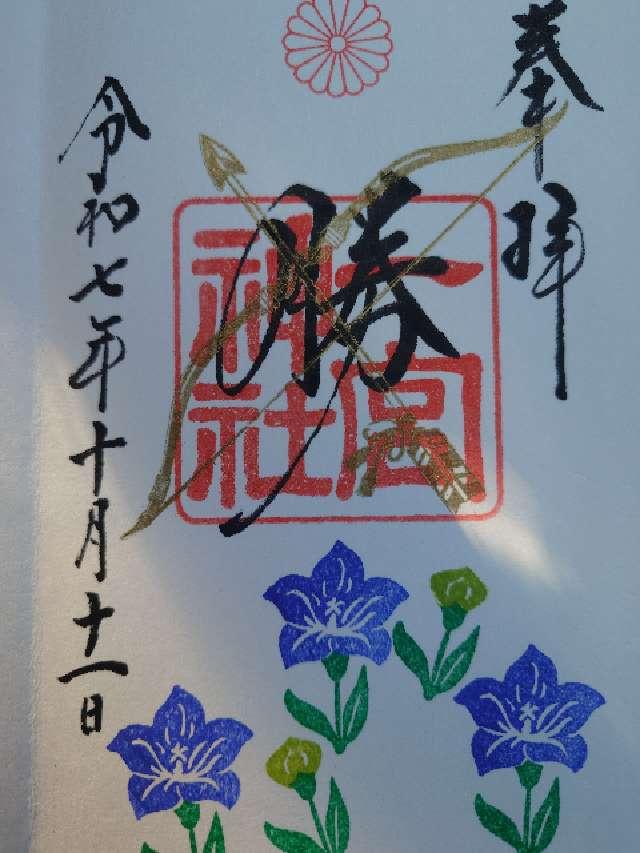 奉拝
勝
一宮
神社
令和七年十月十一日